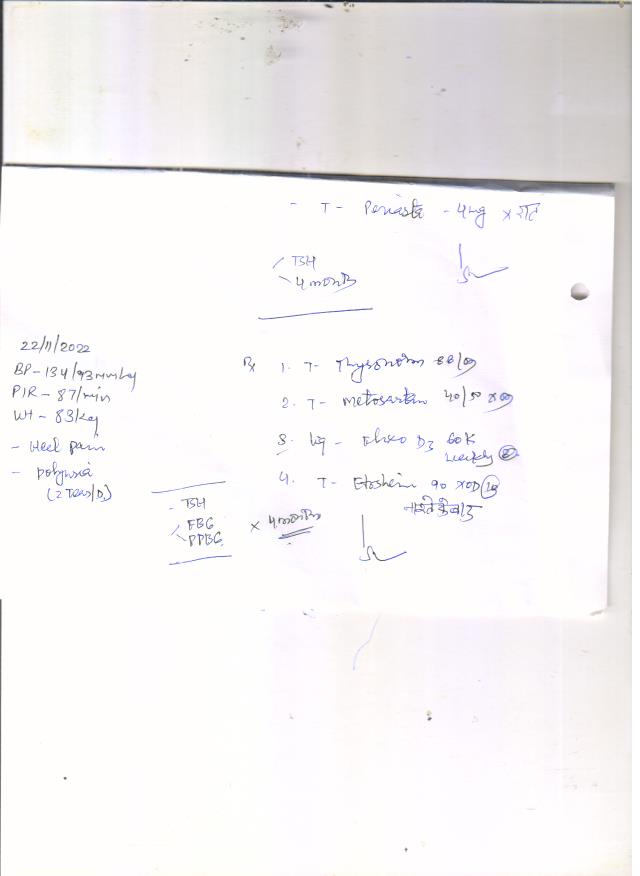 - T - Periasta - 4mg x रात
TSH
4 months
22/11/2022
BP - 134/93 mmHg
P/R - 87/min
Wt - 83 kg
- Heel pain
- polyuria
Rx 1. T - Thyronorm 88/
2. T - Metosartan 40/50 x
3. D3 60K
weekly
4. T - Etoshine 90 x OD
नाश्ते के बाद
- TSH
FBG
PPBG
x 4 months